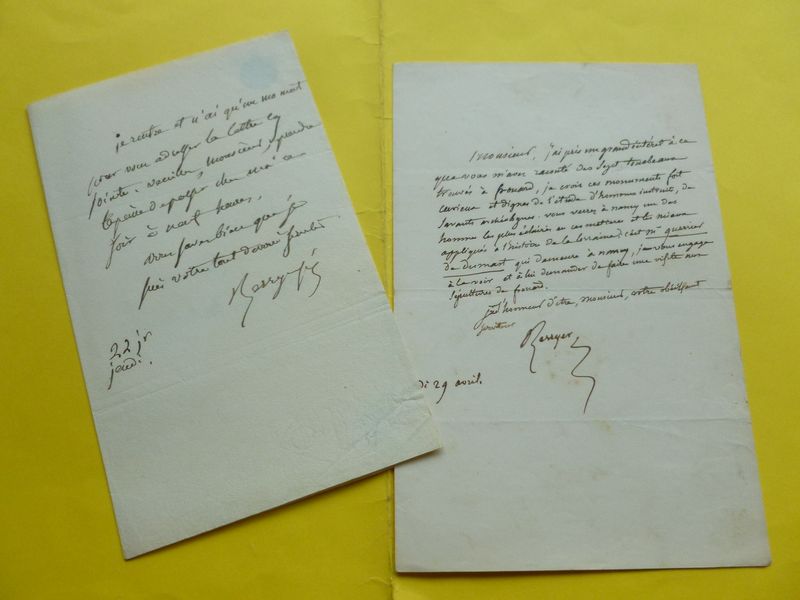 je rentre et n'ai qu'un moment
pour vous adresser la lettre cy
jointe. veuillez, monsieur, prendre
la peine de passer chez moi ce
soir à neuf heures,
vous savez bien que je
suis votre tout dévoué
Berryer fs
22 jr
jeudi.
monsieur, j'ai pris un grand intérêt à ce
que vous m'avez raconté des sept tombeaux
trouvés à frouard, je crois ces monuments fort
curieux et dignes de l'étude d'hommes instruits, de
savants archéologues. vous verrez à nancy un des
hommes les plus éclairés en ces matières et les mieux
appliqués à l'histoire de la lorraine. c'est mr guerrier
de dumast qui demeure à nancy, je vous engage
à le voir et à lui demander de faire une visite aux
sépultures de frouard.
j'ai l'honneur d'être, monsieur, votre obéissant
serviteur
Berryer
di 29 avril.